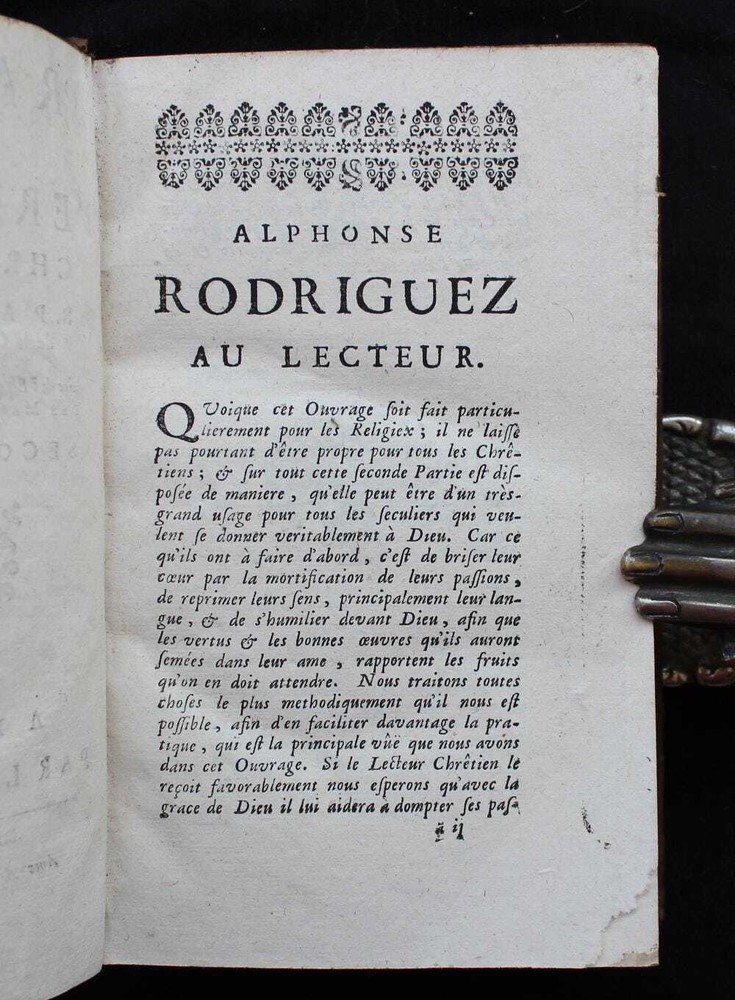 ALPHONSE
RODRIGUEZ
AU LECTEUR.
QVoique cet Ouvrage ſoit fait particu-
lierement pour les Religiex ; il ne laiſſe
pas pourtant d'être propre pour tous les Chrê-
tiens ; & ſur tout cette ſeconde Partie eſt diſ-
poſée de maniere , qu'elle peut être d'un très-
grand uſage pour tous les ſeculiers qui veu-
lent ſe donner veritablement à Dieu. Car ce
qu'ils ont à faire d'abord , c'eſt de briſer leur
cœur par la mortification de leurs paſſions ,
de reprimer leurs ſens , principalement leur lan-
gue , & de s'humilier devant Dieu , afin que
les vertus & les bonnes œuvres qu'ils auront
ſemées dans leur ame , rapportent les fruits
qu'on en doit attendre. Nous traitons toutes
choſes le plus methodiquement qu'il nous eſt
poſſible , afin d'en faciliter davantage la pra-
tique , qui eſt la principale vûë que nous avons
dans cet Ouvrage. Si le Lecteur Chrêtien le
reçoit favorablement nous eſperons qu'avec la
grace de Dieu il lui aidera à dompter ſes paſ-
ã ij